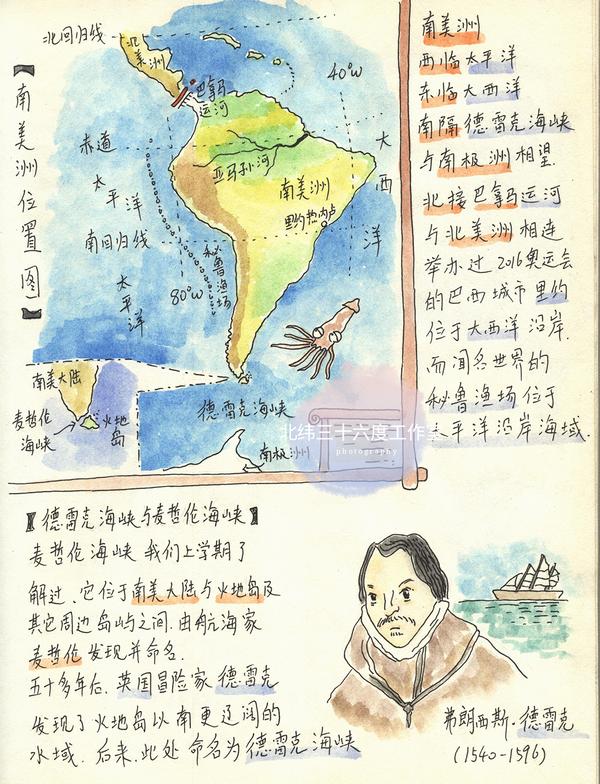 北回归线
北美洲
巴拿马
运河
40°W
【南美洲位置图】
赤道
太平洋
亚马孙河
南美洲
里约热内卢
大西洋
南回归线
秘鲁渔场
太平洋
80°W
南美大陆
麦哲伦
海峡
火地岛
德雷克海峡
南极洲
北纬三十六度工作室
photography
南美洲
西临太平洋
东临大西洋
南隔德雷克海峡
与南极洲相望
北接巴拿马运河
与北美洲相连
举办过2016奥运会
的巴西城市里约
位于大西洋沿岸.
而闻名世界的
秘鲁渔场位于
太平洋沿岸海域.
【德雷克海峡与麦哲伦海峡】
麦哲伦海峡我们上学期了
解过.它位于南美大陆与火地岛及
其它周边岛屿之间.由航海家
麦哲伦发现并命名.
五十多年后.英国冒险家德雷克
发现了火地岛以南更辽阔的
水域.后来.此处命名为德雷克海峡
弗朗西斯·德雷克
(1540-1596)